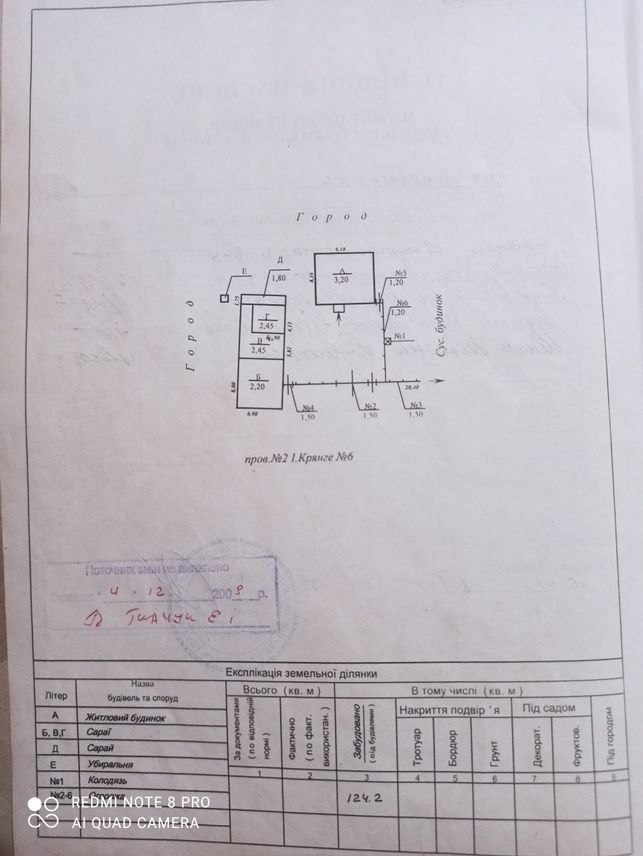 Г о р о д
Г о р о д
Сус. будинок
Е
Д
1,80
9,18
8,16
А
3,20
№5
1,20
№6
1,20
№1
Г
2,45
В 4,90
2,45
4,13
3,82
1,75
Б
2,20
8,00
6,90
№4
1,50
№2
1,50
№3
1,50
20,40
пров.№2 І.Крянге №6
Поточних змін не виявлено
" 4 " 12 2009 р.
Експлікація земельної ділянки
Літер
Назва
будівель та споруд
Всього (кв. м)
В тому числі (кв. м)
За документами
( по відповідній
нормі )
Фактично
( по факт.
використан. )
Забудовано
( під будовами )
Накриття подвір 'я
Під садом
Тротуар
Бордюр
Грунт
Декорат.
Фруктов.
Під городом
А Житловий будинок
Б, В,Г Сараї
Д Сарай
Е Убиральня
№1 Колодязь
№2-6
1 2 3 4 5 6 7 8 9
124.2
REDMI NOTE 8 PRO
AI QUAD CAMERA